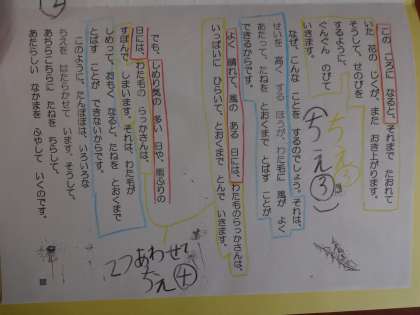 この ころに なると、それまで たおれて
いた 花の じくが、また おき上がります。
そうして、せのびを
するように、
ぐんぐん のびて
いきます。
ちえ③
(ちえ③)
なぜ、こんな ことを するのでしょう。それは、
せいを 高く する ほうが、わた毛に 風が よく
あたって、たねを とおくまで とばす ことが
できるからです。
よく 晴れて、風の ある 日には、わた毛の らっかさんは、
いっぱいに ひらいて、とおくまで とんで いきます。
でも、しめり気の 多い 日や、雨ふりの
日には、わた毛の らっかさんは、
すぼんで しまいます。それは、わた毛が
しめって、おもく なると、たねを とおくまで
とばす ことが できないからです。
2つあわせて
ちえ④
このように、たんぽぽは、いろいろな
ちえを はたらかせて います。そうして、
あちらこちらに たねを ちらして、
あたらしい なかまを ふやして いくのです。